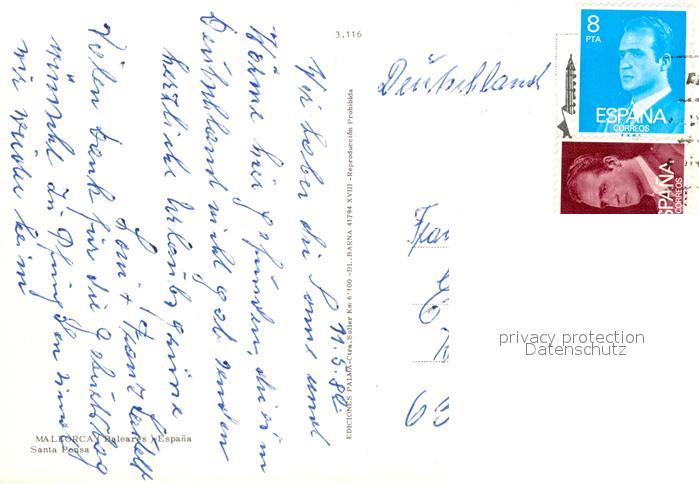 3.116
11.5.82
Wir haben die Sonne und
Wärme hier gefunden, die es in
Deutschland nicht gab. senden
herzliche Urlaubsgrüsse
Toni + Franz
Vielen Dank für die Geburtstag
wünsche. Zu Pfingsten sind
wir wieder heim
MALLORCA (Baleares) España
Santa Ponsa
EDICIONES PALMA-Ctra. Sóller Km 6'100 -D.L. BARNA 41794 XVIII -Reproducción Prohibida
Deutschland
8
PTA
ESPAÑA
CORREOS
ESPAÑA
CORREOS
63
privacy protection
Datenschutz